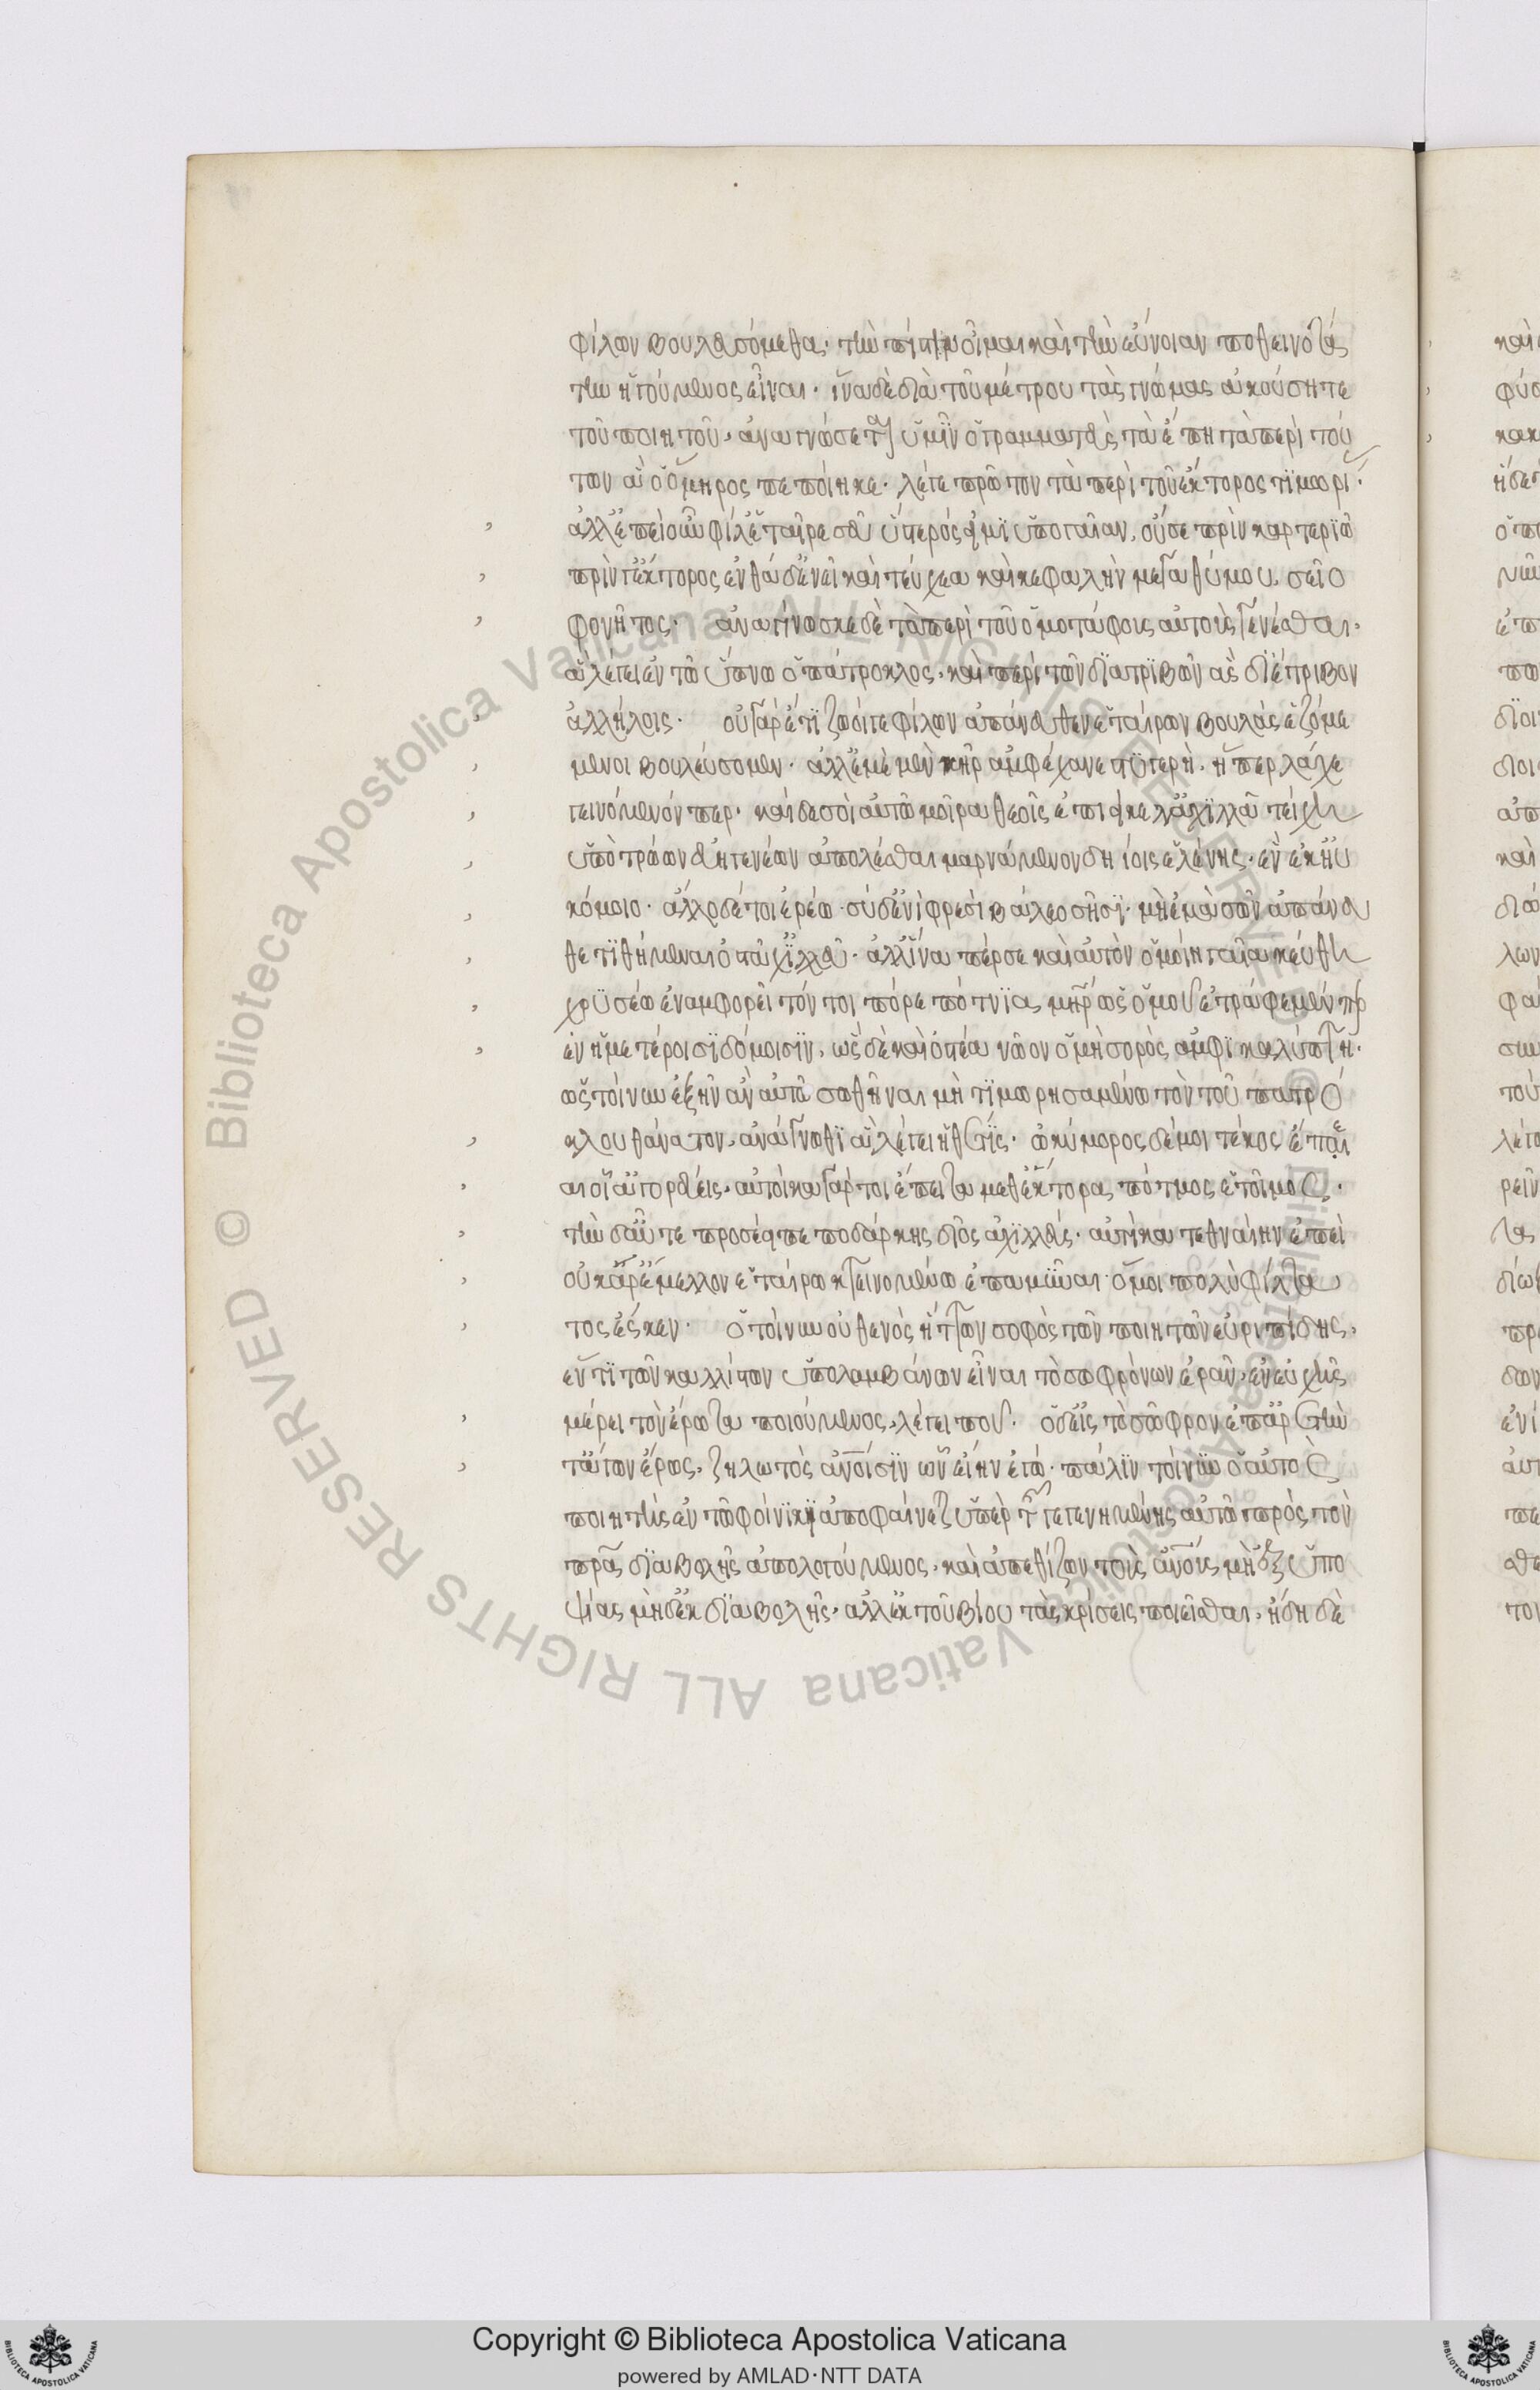 φίλων βουλευσόμεθα· τὴν πίστιν οἶμαι καὶ τὴν εὔνοιαν ποθεινοτά
την ἡγούμενος εἶναι· ἵνα δὲ διὰ τοῦ μέτρου τὰς γνώμας ἀκούσητε
τοῦ ποιητοῦ, ἀναγνώσεται ὑμῖν ὁ γραμματεὺς τὰ ἔπη τὰ περὶ τού
των ἃ ὁ ὅμηρος πεποίηκε· λέγε πρῶτον τὰ περὶ τοῦ ἕκτορος τιμωρί
ἀλλ' ἐπεὶ οὖν φίλ' ἑταῖρε σεῦ ὕστερός εἰμι ὑπὸ γαῖαν, οὔ σε πρὶν καρτεριῶ
πρὶν γ' ἕκτορος ἐνθάδ' ἐνεῖκαι τεύχεα καὶ κεφαλὴν μεγαθύμου σεῖο
φονῆτος· ἀναγίνωσκε δὲ τὰ περὶ τοῦ ὁμοτάφοις αὐτοὺς γενέσθαι·
ἃ λέγει ἐν τῷ ὕπνῳ ὁ πάτροκλος, καὶ περὶ τῶν διατριβῶν ἃς διέτριβον
ἀλλήλοις· οὐ γὰρ ἔτι ζωοί γε φίλων ἀπάνευθεν ἑταίρων βουλὰς ἑζόμε
μενοι βουλεύσομεν· ἀλλ' ἐμὲ μὲν κὴρ ἀμφέχανε στυγερὴ, ἥπερ λάχε
γεινόμενόν περ· καὶ δὲ σοὶ αὐτῷ μοῖρα θεοῖς ἐπιείκελ' ἀχιλλεῦ τείχει
ὑπὸ τρώων εὐηγενέων ἀπολέσθαι μαρνάμενον δηίοις ἑλένης ἕνεκ' ἠυ
κόμοιο· ἄλλο δέ τοι ἐρέω· σὺ δ' ἐνὶ φρεσὶ βάλλεο σῇσι· μὴ ἐμὰ σῶν ἀπάνευ
θε τιθήμεναι ὀστ' ἀχιλλεῦ· ἀλλ' ἵνα πέρ σε καὶ αὐτὸν ὁμοίη γαῖα κεύθει
χρυσέῳ ἐν ἀμφορεῖ τόν τοι πόρε πότνια μήτηρ ὡς ὁμοῦ ἐτράφεμέν περ
ἐν ἡμετέροισι δόμοισιν, ὣς δὲ καὶ ὀστέα νῶιν ὁμὴ σορὸς ἀμφικαλύπτη·
ὡς τοίνυν ἐξῆν ἂν αὐτῷ σωθῆναι μὴ τιμωρησαμένῳ τὸν τοῦ πατρό
κλου θάνατον, ἀνάγνωθι ἃ λέγει ἡ θέτις· ὠκύμορος δέ μοι τέκος ἔσσε
αι οἷ' ἀγορεύεις, αὐτίκα γάρ τοι ἔπειτα μεθ' ἕκτορα πότμος ἑτοῖμος·
τὴν δ' αὖτε προσέειπε ποδάρκης δῖος ἀχιλλεύς· αὐτίκα τεθναίην ἐπεὶ
οὐκ ἄρ' ἔμελλον ἑταίρῳ κτεινομένῳ ἐπαμῦναι· ὅ μοι πολὺ φίλτα
τος ἔσκεν· ὁ τοίνυν οὐθενὸς ἧττον σοφὸς τῶν ποιητῶν εὐριπίδης,
ἕν τι τῶν καλλίστων ὑπολαμβάνων εἶναι τὸ σωφρόνων ἐρᾶν, ἐν εὐχῆς
μέρει τὸν ἔρωτα ποιούμενος, λέγει που· ὁ δ' εἰς τὸ σῶφρον ἐπ' ἀρετὴν
τ' ἄγων ἔρως, ζηλωτὸς ἀνθρώποισιν ὧν εἴην ἐγώ· πάλιν τοίνυν ὁ αὐτὸς
ποιητὴς ἐν τῷ φοίνικι ἀποφαίνεται ὑπὲρ τῆς γεγενημένης αὐτῷ πρὸς τὸν
πατέρα διαβολῆς ἀπολογούμενος, καὶ ἀπεθίζων τοὺς ἀνθρώπους μὴ ἐξ ὑπο
ψίας μηδ' ἐκ διαβολῆς, ἀλλ' ἐκ τοῦ βίου τὰς κρίσεις ποιεῖσθαι, ἤδη δὲ
Copyright © Biblioteca Apostolica Vaticana
powered by AMLAD·NTT DATA